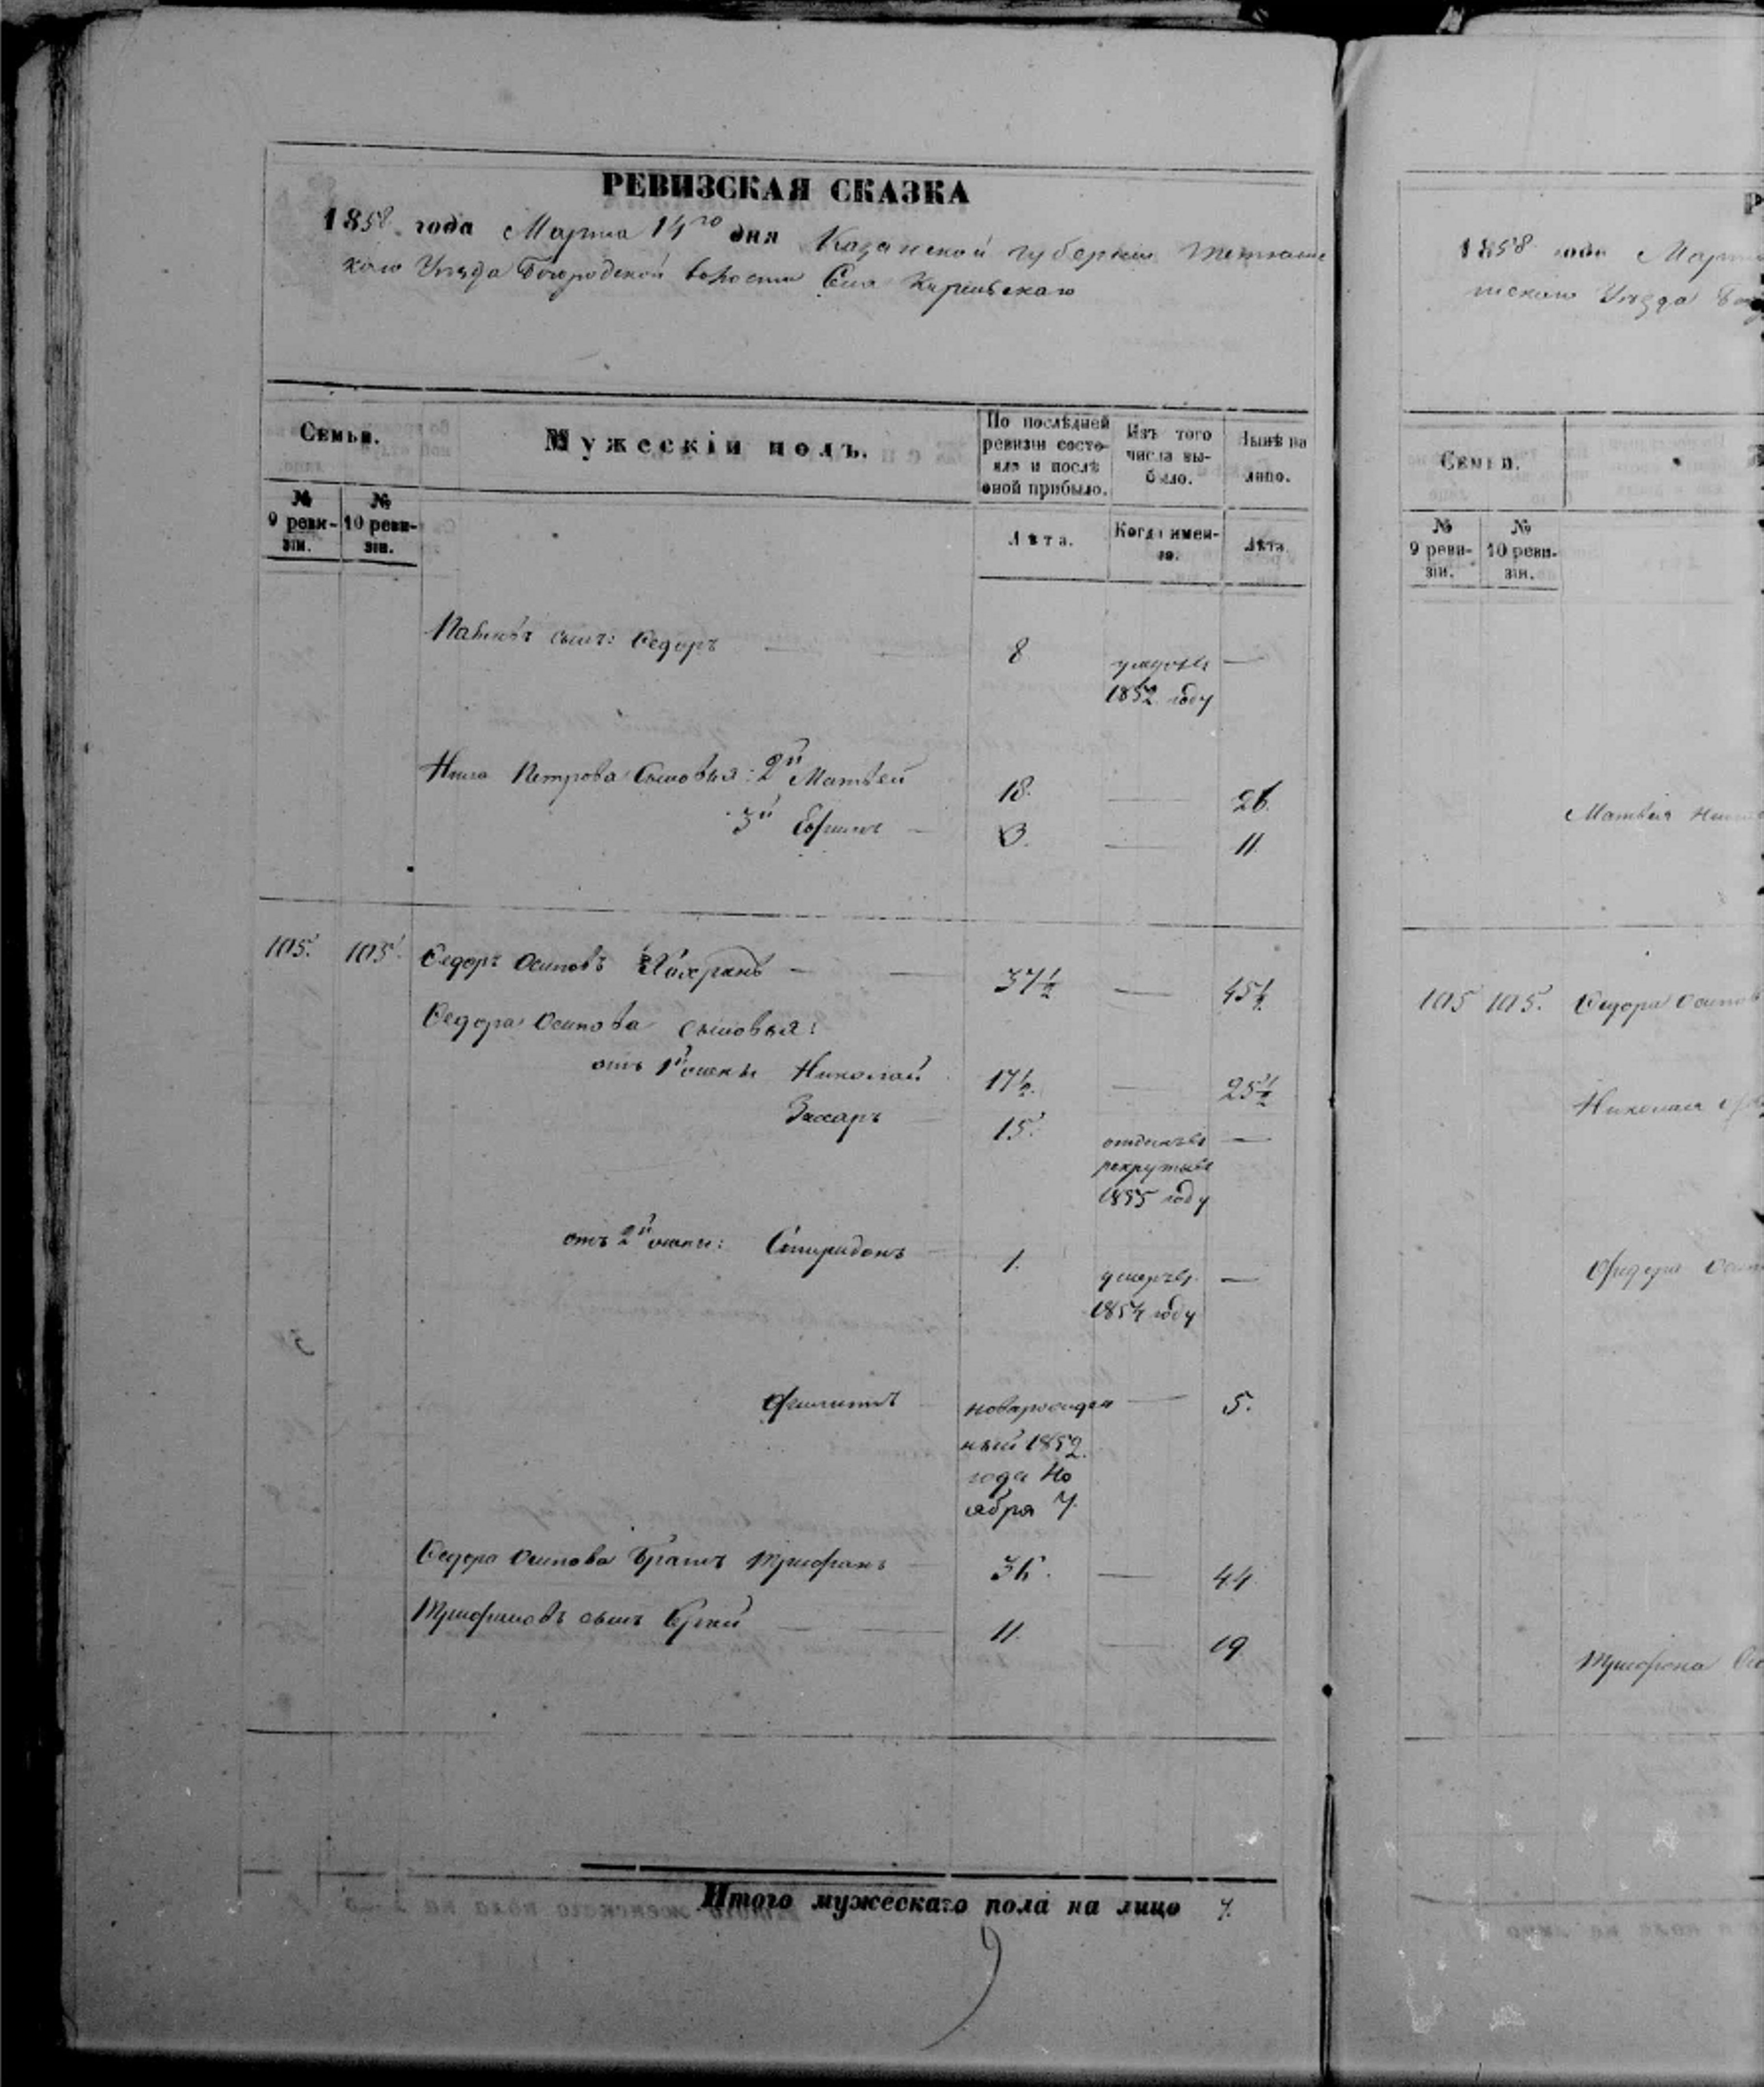 РЕВИЗСКАЯ СКАЗКА
1858 года Марта 14го дня Казанской губернии Тетюшс
каго Уезда Богородской волости Села
Семьи.
Мужескій полъ.
По послѣдней ревизіи состояло и послѣ оной прибыло.
Изъ того числа выбыло.
Нынѣ на лицо.
№ 9 ревизіи.
№ 10 ревизіи.
Лѣта.
Когда именно.
Лѣта.
сынъ: Федоръ — — 8 —
1852 году
Петрова Сыновья: 2й Матвей 18. — 26.
3й Ефимъ — 3. — 11.
105. 105. Федоръ Осиповъ — — 37½ — 45½
Федора Осипова сыновья:
отъ 1й жены Николай 17½. — 25½
Захаръ — 15. отданъ въ —
рекруты въ
1855 году
отъ 2й жены: Спиридонъ — 1. умеръ въ —
1854 году
Филиппъ — новорожден — 5.
ный 1852
года Но
ября 7.
Федора Осипова братъ Трифонъ — 36. — 44
Трифоновъ сынъ — — 11. — 19
Итого мужескаго пола на лицо 7.
1858 года Март
шскаго Уезда Бог
Семьи.
№ 9 ревизіи.
№ 10 ревизіи.
Матвея
105 105. Федора Осипов
Николая
Федора
Трифона